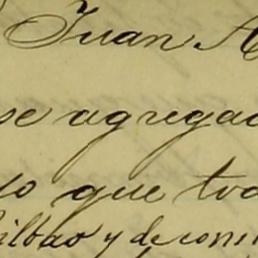 Juan A
se agregad
lo que tod
Bilbao y de